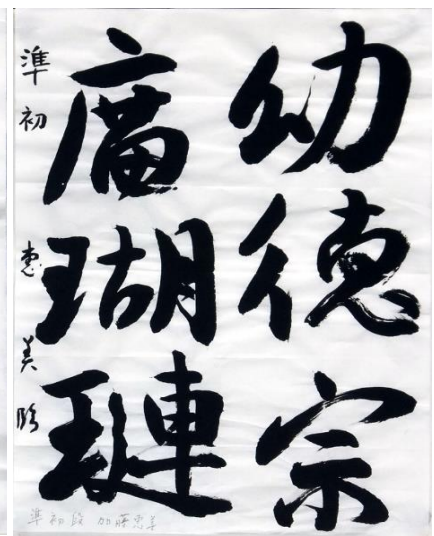 幼徳宗
廣瑚璉
準初 恵美臨
準初段 加藤恵美